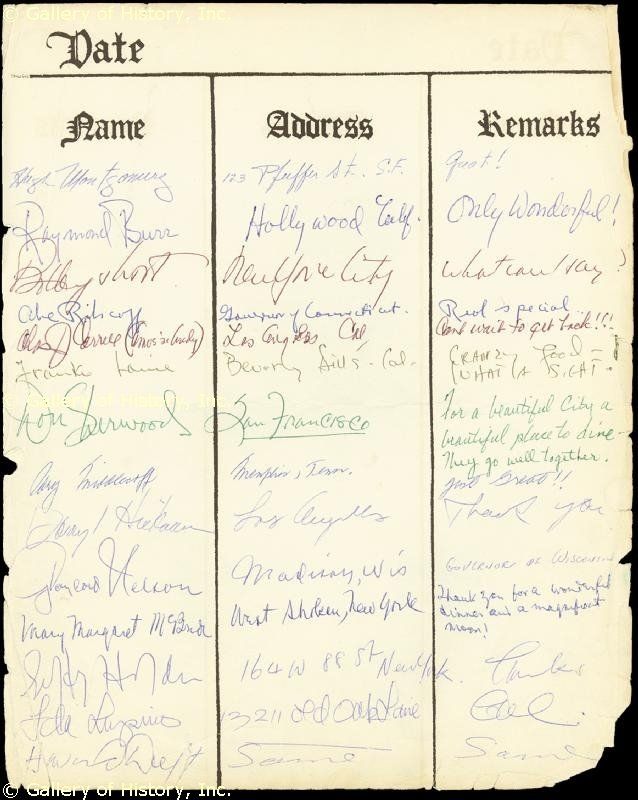 © Gallery of History, Inc.
Date
Name Address Remarks
Hugh Montgomery 123 Pfeiffer St. S.F. Great!
Raymond Burr Hollywood Calif. Only Wonderful!
Bobby Short. New York City What can I say?
Abe Ribicoff Governor of Connecticut. Real special
(Amos 'n Andy) Los Angeles Cal Can't wait to get back!!!
Frankie Laine Beverly Hills - Cal - Crazy Food =
WHAT A SIGHT.
Don Sherwood San Francisco For a beautiful City a
beautiful place to dine -
They go well together.
Cary Middlecoff Memphis, Tenn. Just Great!!
Darryl Hickman Los Angeles Thank you
Gaylord Nelson Madison, Wis Governor of Wisconsin
Mary Margaret McBride West Shokan, New York Thank you for a wonderful
dinner and a magnificent
moon!
164 W 88 St New York. Thanks
Ida Lupino 13211 Old Oak Lane
Howard Duff Same Same
© Gallery of History, Inc.